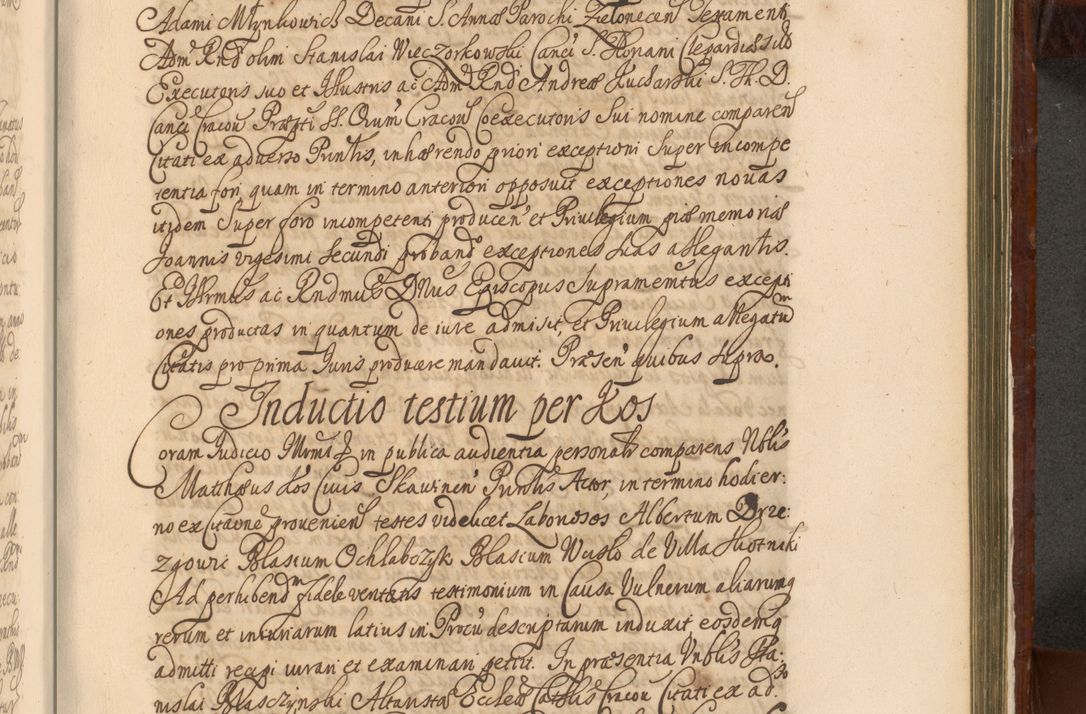 Adami Młynkowich Decani S. Annæ Parochi Zielonecen Testamenti
Adm Rnd olim Stanislai Wieczorkowski Canci S. Floriani Clepardiæ sub
Executoris suo et Illustris ac Adm Rnd Andreæ Kucharski S. Th. D.
Canci Cracov Præpti SS. Orum Cracov Coexecutoris Sui nomine comparen
Citati ex adverso Pruntis, inhærendo priori exceptioni Super incompe
tentia fori, quam in termino anteriori opposuit exceptiones novas
itidem Super foro incompetenti producen et Privilegium piæ memoriæ
Joannis vigesimi Secundi proband exceptiones suas allegantis.
Et Illrmus ac Rndmus Dnus Episcopus Supramemtus excepti
ones productas in quantum de iure admisit, et Privilegium allegatum
Citatis pro prima Juris producere mandavit. Præsen quibus supra.
Inductio testium per Kos
Coram Judicio Illrmi in publica audientia personalr comparens Nblis
Matthæus Kos Civis Skavinen Pruntis Actor, in termino hodier:
no ex Citaone provenien testes videlicet Laboriosos Albertum Drze:
zgowic Blasium Ochlabczyk Blasium Wusło de Villa
Ad perhibendm fidele veritatis testimonium in Causa Vulnerum aliarumq
rerum et iniuriarum latius in Procu descriptarum induxit eosdemq
admitti recipi iurari et examinari petiit. In præsentia Vnblis Sta:
nislai Blasczynski Altaristæ Ecclæ Cathlis Cracov Citati ex ad: